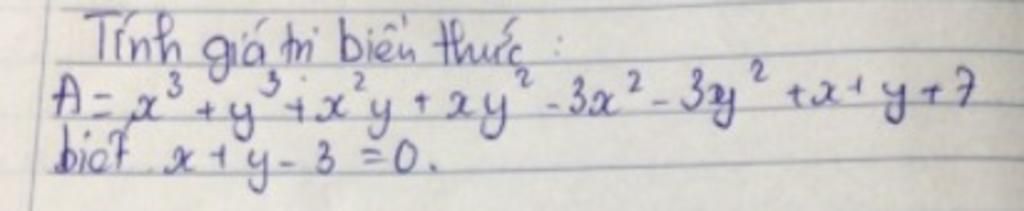 Tính giá trị biểu thức :
A = x³ + y³ + x²y + xy² - 3x² - 3y² + x + y + 7
biết x + y - 3 = 0.